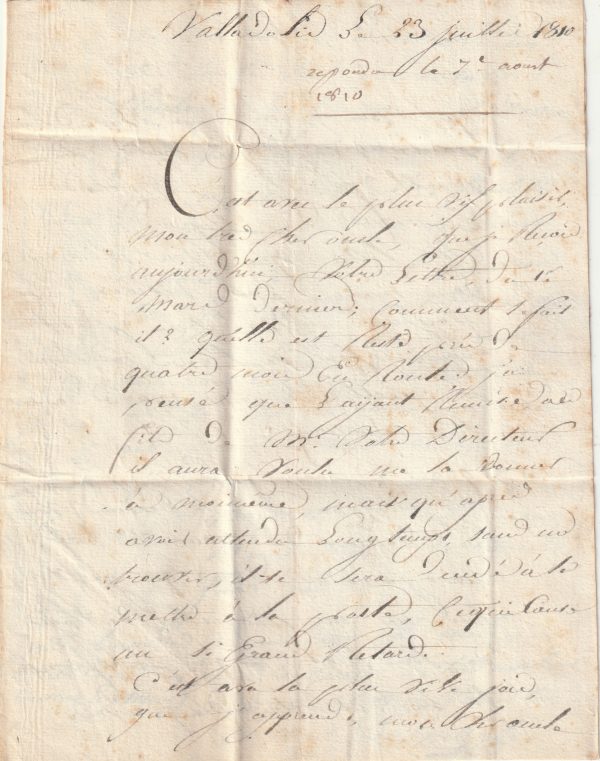 Valladolid Le 23 juillet 1810
repondu le 7e aoust
1810
C'est avec le plus vif plaisir,
mon tres cher oncle, que je Recois
aujourd'hui Votre Lettre, du 1e
Mars dernier; Comment se fait
il? quelle est Resté près de
quatre mois En Route; j'ai
pensé que L'ayant Remise au
fils de Mr. Votre Directeur
il aura Voulu me la donner
à moimême, mais qu'apres
avoir attendu Longtemps, sans me
trouver, il se sera décidé à la
mettre à la poste, Ce qui Cause
un Si Grand Retard.
C'est avec la plus Vive joie,
que j'apprends, mon cher oncle